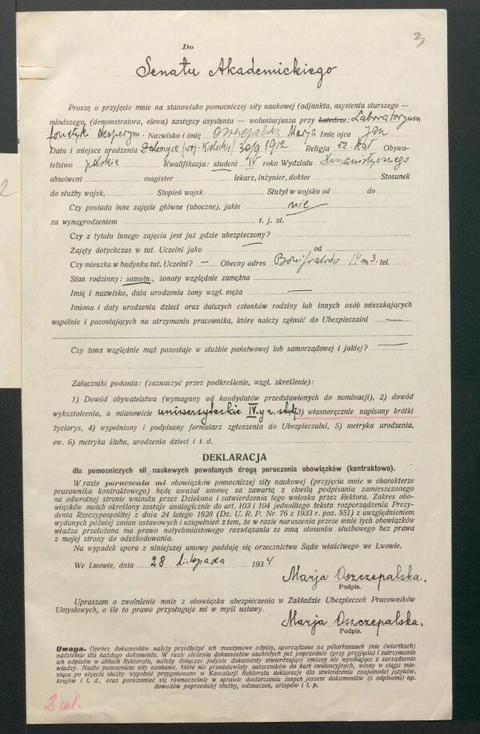 3
Do
Senatu Akademickiego
Proszę o przyjęcie mnie na stanowisko pomocniczej siły naukowej (adjunkta, asystenta starszego —
młodszego, (demonstratora, elewa) zastępcy asystenta — woluntarjusza przy katedrze: Laboratorjum
fonetyk eksperym. Nazwisko i imię Oszczepalska Marja Imię ojca Jan
Data i miejsce urodzenia (woj. Kieleckie) 30/9 1912 Religja rz. kat Obywa-
telstwo polskie Kwalifikacja: student IV roku Wydziału Humanistycznego
absolwent magister lekarz, inżynier, doktor Stosunek
do służby wojsk. Stopień wojsk. Służył w wojsku od do
Czy posiada inne zajęcie główne (uboczne), jakie nie
za wynagrodzeniem t. j. zł.
Czy z tytułu innego zajęcia jest już gdzie ubezpieczony?
Zajęty dotychczas w tut. Uczelni jako od
Czy mieszka w budynku tut. Uczelni? — Obecny adres Bonifratrów 14 m 3. tel.
Stan rodzinny: samotn., żonaty względnie zamężna
Imię i nazwisko, data urodzenia żony wzgl. męża
Imiona i daty urodzenia dzieci oraz dalszych członków rodziny lub innych osób mieszkających
wspólnie i pozostających na utrzymaniu pracownika, które należy zgłosić do Ubezpieczalni
Czy żona względnie mąż pozostaje w służbie państwowej lub samorządowej i jakiej?
Załączniki podania: (zaznaczyć przez podkreślenie, wzgl. skreślenie):
1) Dowód obywatelstwa (wymagany od kandydatów przedstawionych do nominacji), 2) dowód
wykształcenia, a mianowicie uniwersyteckie IV-y r. stud. 3) własnoręcznie napisany krótki
życiorys, 4) wypełniony i podpisany formularz zgłoszenia do Ubezpieczalni, 5) metryka urodzenia,
ew. 6) metryka ślubu, urodzenia dzieci i t. d.
DEKLARACJA
dla pomocniczych sił naukowych powołanych drogą poruczenia obowiązków (kontraktowo).
W razie poruczenia mi obowiązków pomocniczej siły naukowej (przyjęcia mnie w charakterze
pracownika kontraktowego) będę uważał umowę za zawartą z chwilą podpisania zamieszczonego
na odwrotnej stronie wniosku przez Dziekana i zatwierdzenia tego wniosku przez Rektora. Zakres obo-
wiązków moich określony zostaje analogicznie do art. 103 i 104 jednolitego tekstu rozporządzenia Prezy-
denta Rzeczypospolitej z dnia 24 lutego 1928 (Dz. U. R. P. Nr. 76 z 1933 r. poz. 551) z uwzględnieniem
wydanych później zmian ustawowych i uzupełnień z tem, że w razie naruszenia przeze mnie tych obowiązków
władza przełożona ma prawo natychmiastowego rozwiązania ze mną stosunku służbowego bez prawa
z mej strony do odszkodowania.
Na wypadek sporu z niniejszej umowy poddaję się orzecznictwu Sądu właściwego we Lwowie.
We Lwowie, dnia 28 listopada 1934
Marja Oszczepalska.
Podpis.
Upraszam o zwolnienie mnie z obowiązku ubezpieczenia w Zakładzie Ubezpieczeń Pracowników
Umysłowych, o ile to prawo przysługuje mi w myśl ustawy.
Marja Oszczepalska.
Podpis.
Uwaga. Oprócz dokumentów należy przedłożyć ich maszynowe odpisy, sporządzone na półarkuszach (nie ćwiartkach)
oddzielnie dla każdego dokumentu. W razie złożenia dokumentów osobistych już poprzednio (przy przyjęciu) i zatrzymania
ich odpisów w aktach Rektoratu, należy dołączyć jedynie dokumenty stwierdzające zmiany nie wynikające z zarządzenia
władzy.
2 zał.
2